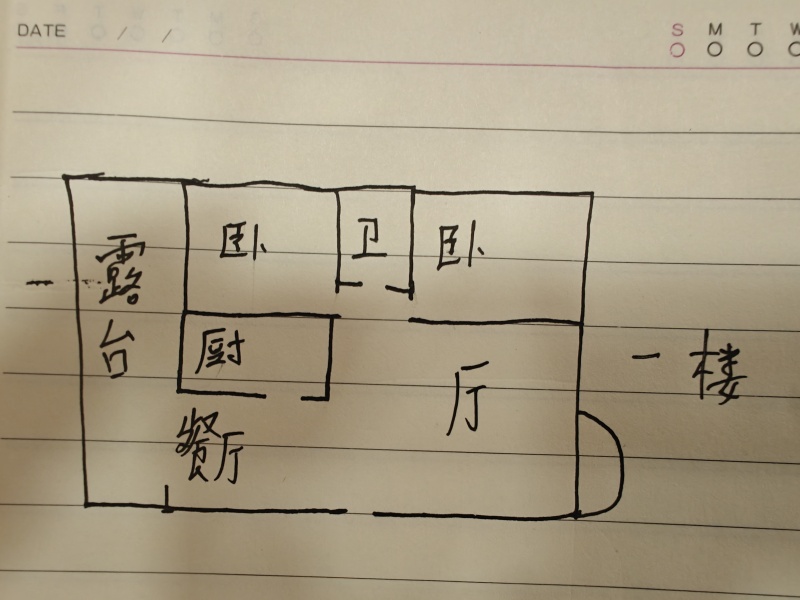 DATE / /
S M T W
卧 卫 卧
露台
厨
厅
餐厅
一楼